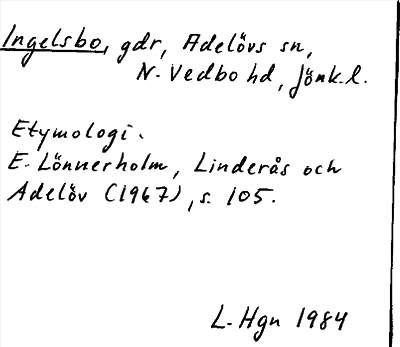 Ingelsbo, gdr, Adelövs sn,
N. Vedbo hd, Jönk.l.
Etymologi.
E. Lönnerholm, Linderås och
Adelöv (1967), s. 105.
L-Hgn 1984